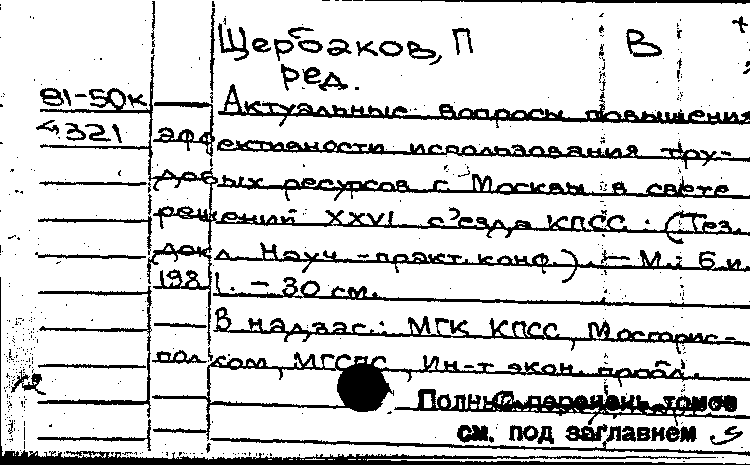 Щербаков, П В
ред.
81-50к Актуальные вопросы повышения
321 эффективности использования тру-
довых ресурсов г. Москвы в свете
решений XXVI съезда КПСС : (Тез.
докл. Науч.-практ. конф.). — М.: Б.и.
1981. - 30 см.
В надзаг.: МГК КПСС, Мосгорис-
полком, МГСПС, Ин-т экон. пробл.
Полный перечень томов
см. под заглавием